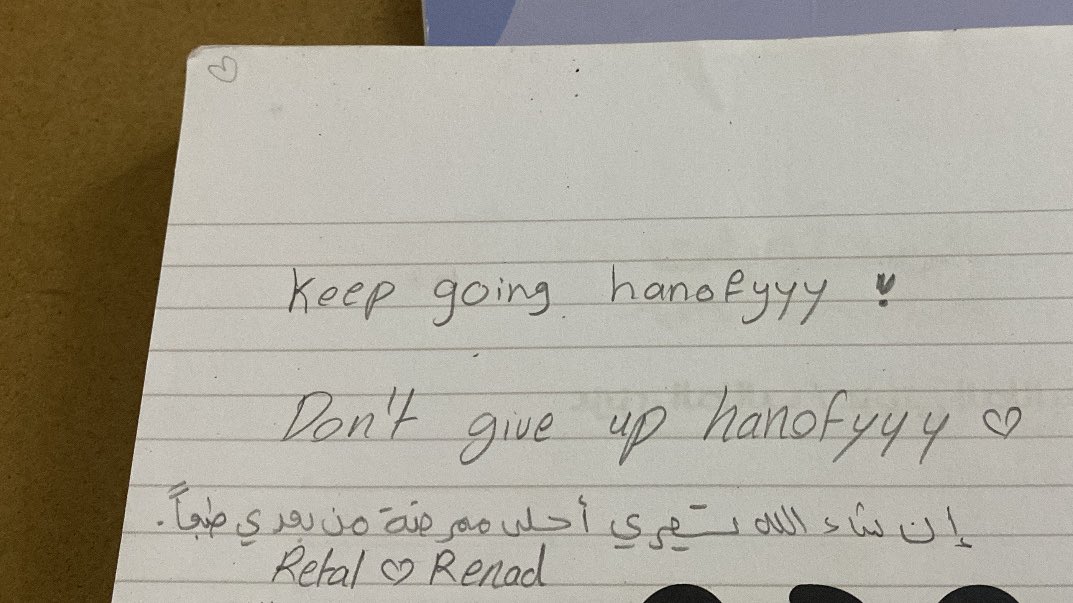 Keep going hanofyyy !
Don't give up hanofyyy ♡
إن شاء الله تصيري أحلى ممرضة من بعدي طبعاً.
Retal ♡ Renad